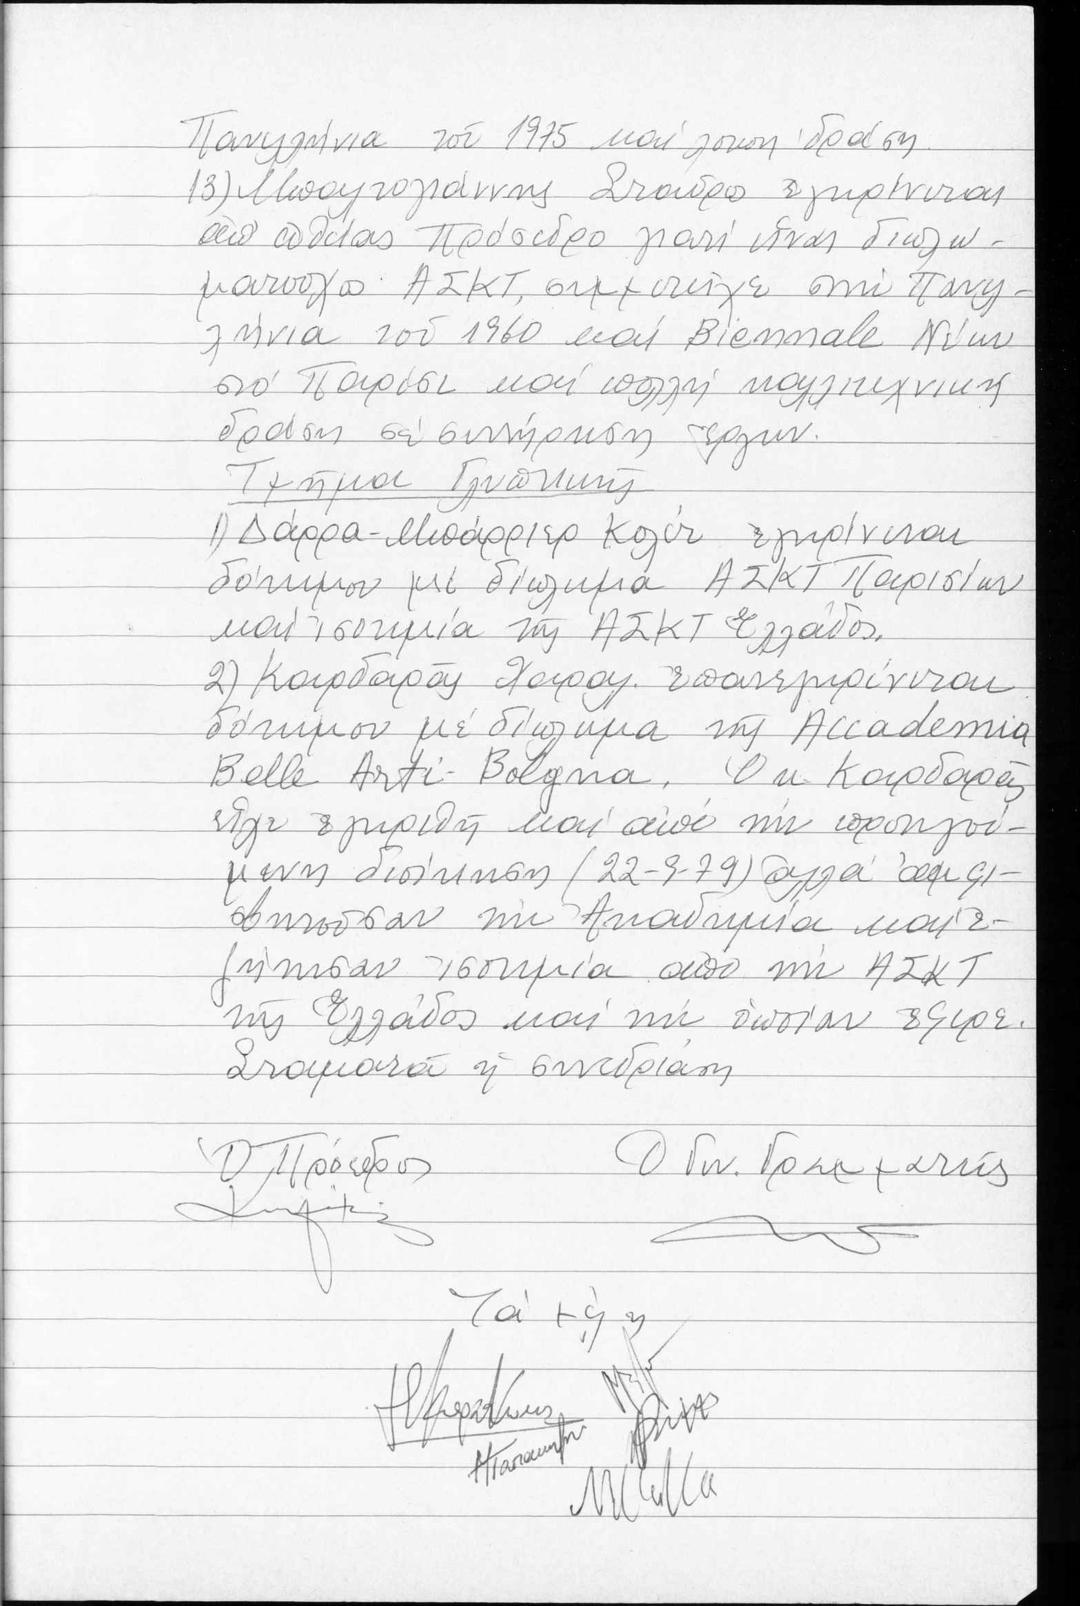 Πανελλήνια τοῦ 1975 καί λοιπή δράση
13) Μπαλτογιάννης Σταῦρο ἐγκρίνεται
ἀπ' εὐθείας Πρόσεδρο γιατί εἶναι διπλω-
ματοῦχο ΑΣΚΤ, συμμετεῖχε στή Πανελ-
λήνια τοῦ 1960 καί Biennale Νέων
στό Παρίσι καί πολλή καλλιτεχνική
δράση σέ συντήρηση ἔργων.
Τμῆμα Γλυπτικῆς
1) Δάρρα-Μπάρριερ Κολέτ ἐγκρίνεται
δόκιμον μέ δίπλωμα ΑΣΚΤ Παρισίων
καί ἰσοτιμία τῆς ΑΣΚΤ Ἑλλάδος.
2) Καρδαρᾶς Χαραλ. ἐπανεγκρίνεται
δόκιμον μέ δίπλωμα τῆς Accademia
Belle Arti - Bologna. Ὁ κ. Καρδαρᾶς
εἶχε ἐγκριθῆ καί ἀπό τήν προηγού-
μενη διοίκηση (22-9-79) ἀλλά ἀμφι-
σβητοῦσαν τήν Ἀκαδημία καί ἐ-
ζήτησαν ἰσοτιμία ἀπό τήν ΑΣΚΤ
τῆς Ἑλλάδος καί τήν ὁποίαν ἔφερε.
Σταματᾶ ἡ συνεδρίαση
Ὁ Πρόεδρος Ὁ Γεν. Γραμματεύς
Τά μέλη